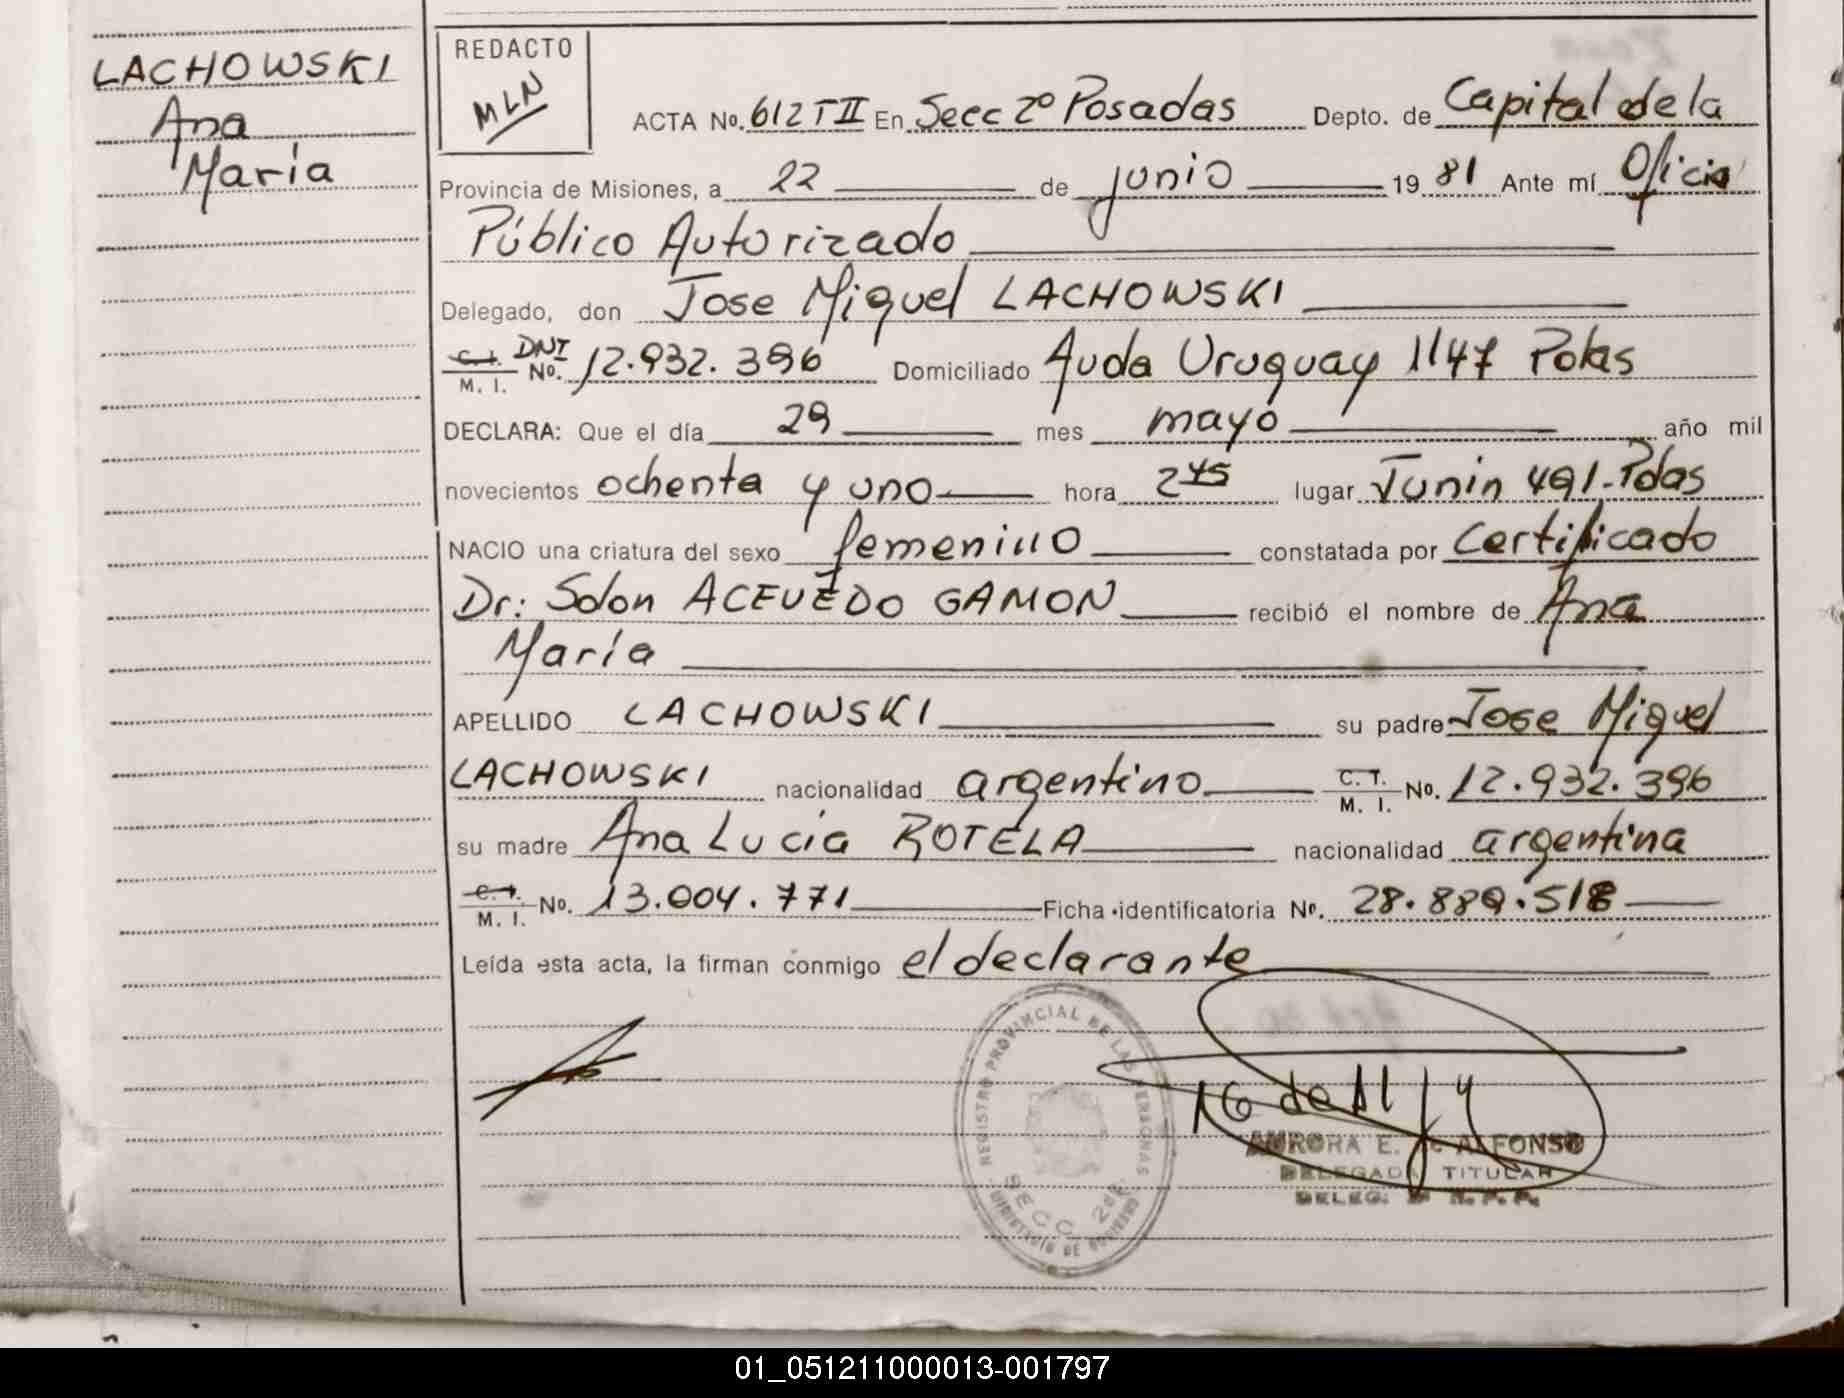 LACHOWSKI
Ana
María
REDACTO
MLN
ACTA No. 612 T II En Secc 2º Posadas Depto. de Capital de la
Provincia de Misiones, a 22 de junio 19 81 Ante mí Oficial
Público Autorizado
Delegado, don Jose Miguel LACHOWSKI
C. I. DNI
M. I. No. 12.932.396 Domiciliado Avda Uruguay 1147 Pdas
DECLARA: Que el día 29 mes mayo año mil
novecientos ochenta y uno hora 2 45 lugar Junin 491. Pdas
NACIO una criatura del sexo femenino constatada por Certificado
Dr: Solon ACEVEDO GAMON recibió el nombre de Ana
María
APELLIDO LACHOWSKI su padre Jose Miguel
LACHOWSKI nacionalidad argentino C. I. M. I. No. 12.932.396
su madre Ana Lucia ROTELA nacionalidad argentina
C. I. M. I. No. 13.004.771 Ficha identificatoria No. 28.889.518
Leída esta acta, la firman conmigo el declarante
REGISTRO PROVINCIAL DE LAS PERSONAS
SECC 2da
MINISTERIO DE GOBIERNO
AURORA E. de ALFONSO
DELEGADA TITULAR
DELEG. R. P. P.
01_051211000013-001797